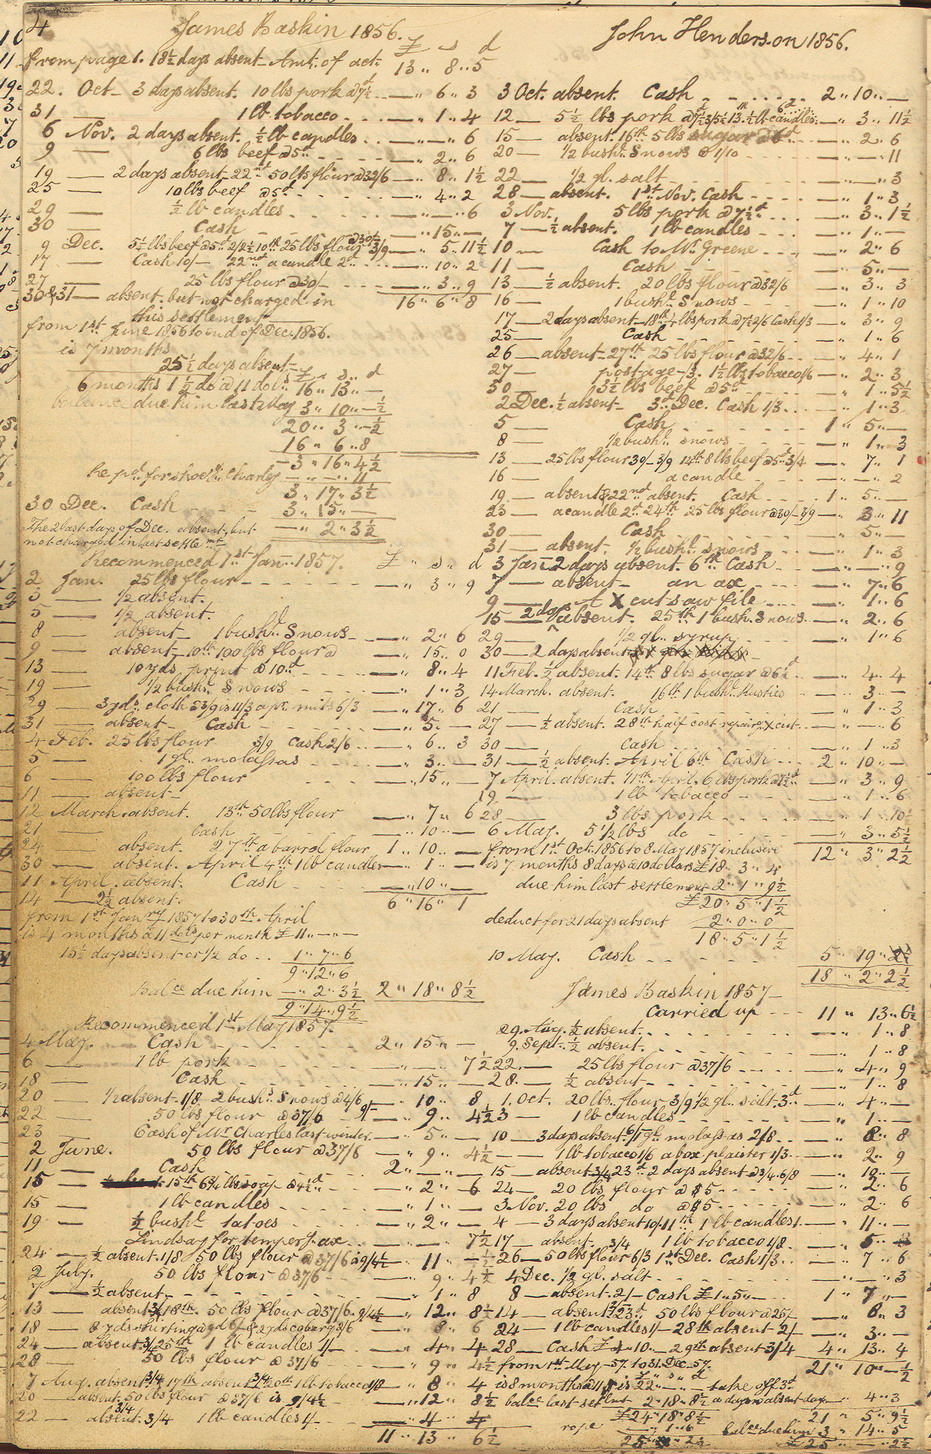 4 James Baskin 1856. £ s d
From page 1. 18½ days absent Amt. of act. 13 " 8 " 5
22. Oct - 3 days absent. 10 lbs pork @7½ — " 6 " 3
31 — 1 lb tobacco — " 1 " 4
6 Nov. 2 days absent. ½ lb candles — " — " 6
9 — 6 lbs beef @5d — " 2 " 6
19 — 2 days absent 22nd 50 lbs flour @32/6 — " 8 " 1½
25 — 10 lbs beef @5d — " 4 " 2
29 — ½ lb candles — " — " 6
30 — Cash — " 15 " —
9 Dec. 5½ lbs beef @5d 2/3½ 10th 25 lbs flour @30/ 3/9 — " 5 " 11½
17 Cash 10/- 22nd a candle 2d — " 10 " 2
27 — 25 lbs flour @30/ — " 3 " 9
30 & 31 — absent but not charged in 16 " 6 " 8
this settlement
from 1st June 1856 to end of Dec. 1856.
is 7 months
25½ days absent
6 months 1½ do @ 11 dols £ 16 " 13 " —
balance due him last day 3 " 10 " —½
20 " 3 " —½
16 " 6 " 8
— 3 " 16 " 4½
he pd. for shoeth. Charly — " — " 11
3 " 17 " 3½
30 Dec. Cash 3 " 15 " —
The 2 last days of Dec. absent, but — " 2 " 3½
not charged in last settlemt
Recommenced 1st Jan. 1857. £ " s " d
2 Jan. 25 lbs flour — " 3 " 9
3 — ½ absent.
5 — ½ absent.
8 absent — 1 bushl. Snows — " 2 " 6
9 absent — 10th 100 lbs flour @ — " 15 " 0
13 10 yds. print @ 10d — " 8 " 4
19 — ½ bushl. Snows — " 1 " 3
29 3 yds. cloth @3/9 is 11/3 a pr. mits 6/3 — " 17 " 6
31 — absent Cash — " 5 " —
4 Feb. 25 lbs flour 3/9 Cash 2/6 — " 6 " 3
5 — 1 gl. molassas — " 3 " —
6 100 lbs flour — " 15 " —
11 — absent —
12 March. absent. 13th 50 lbs flour — " 7 " 6
21 — Cash — " 10 " —
24 absent. 27th a barrel flour 1 " 10 " —
30 — absent. April 4th 1 lb candles — " 1 " —
11 April. absent. Cash — " 10 " —
14 — 2½ absent. 6 " 16 " 1
from 1st Jany 1857 to 30th April
is 4 months @ 11 dolrs per month £ 11 " — " —
15½ days absent or ½ do .. 1 " 7 " 6
9 " 12 " 6
Balce due him — " 2 " 3½ 2 " 18 " 8½
9 " 14 " 9½
Recommenced 1st May 1857.
4 May. Cash 2 " 15 " —
6 — 1 lb pork — " — " 7½
18 — Cash — " 15 " —
20 — ½ absent 1/8. 2 bushl. Snows @4/6 9/- — " 10 " 8
22 — 50 lbs flour @ 37/6 — " 9 " 4½
23 — Cash of Mr Charles last winter — " 5 " —
2 June. 50 lbs flour @ 37/6 — " 9 " 4½
11 — Cash 2 " — " —
15 — 15th 6¾ lbs soap @4½d — " 2 " 6
15 — 1 lb candles — " 1 " —
19 — ½ bushl. tatoes — " 2 " —
Lindsay for temper. f. axe — " — " 7½
24 — ½ absent. 1/8. 50 lbs flour @ 37/6 is 9/4½ — " 11 " —½
2 July. 50 lbs flour @ 37/6 — " 9 " 4½
7 — ½ absent — " 1 " 8
13 — absent 3/4 18th. 50 lbs flour @ 37/6. 9/4½ — " 12 " 8½
18 — — " 8 " 6
24 — absent 3/4 25th 1 lb candles 1/- — " 4 " 4
28 — 50 lbs flour @ 37/6 — " 9 " 4½
7 Aug. absent 3/4 17th absent 3/4 20th 1 lb tobacco 1/8 — " 8 " 4
20 — absent. 50 lbs flour @ 37/6 is 9/4½ — " 12 " 8½
22 — absent 3/4 1 lb candles 1/- — " 4 " 4
11 " 13 " 6½
John Henderson 1856.
3 Oct. absent. Cash 2 " 10 " —
12 — 5½ lbs pork @7½ 3/5½ 13th ½ lb candles 6d — " 3 " 11½
15 — absent. 16th 5 lbs sugar @6d — " 2 " 6
20 — ½ bushl. Snows @ 1/10 — " — " 11
22 — ½ gl. salt — " — " 3
28 — absent. 1st Nov. Cash — " 1 " 3
3 Nov. 5 lbs pork @7½d — " 3 " 1½
7 — ½ absent. 1 lb candles — " 1 " —
10 — Cash to Mr. Greene — " 2 " 6
11 — Cash — " 5 " —
13 — ½ absent. 20 lbs flour @32/6 — " 3 " 3
16 — 1 bushl. Snows — " 1 " 10
17 — 2 days absent — 18th 4 lbs pork @7½ 2/6 Cash 1/3 — " 3 " 9
25 — Cash — " 1 " 6
26 — absent. 27th 25 lbs flour @32/6 — " 4 " 1
27 — postage -/3. 1½ lbs tobacco 1/6 — " 2 " 3
30 — 3½ lbs beef @5d — " 1 " 5½
2 Dec. ½ absent — 3rd Dec. Cash 1/3 — " 1 " 3
5 — Cash 1 " 5 " —
8 — ½ bushl. snows — " 1 " 3
13 — 25 lbs flour 30/- 3/9 14th 8 lbs beef @5d 3/4 — " 7 " 1
16 — a candle — " — " 2
19 — absent & 22nd absent. Cash 1 " 5 " —
23 — a candle 2d. 24th 25 lbs flour @30/- 3/9 — " 3 " 11
30 — Cash — " 5 " —
31 — absent. ½ bushl. snows — " 1 " 3
3 Jan 2 days absent. 6th Cash — " — " 9
7 — absent — an ax — " 7 " 6
9 — A X cut saw file — " 1 " 6
15 — 2 days absent. 25th 1 bushl. Snows — " 2 " 6
29 — ½ gl. syrup — " 1 " 6
30 — 2 days absent
11 Feb. ½ absent. 14th 8 lbs sugar @6½d — " 4 " 4
14 March. absent. 16th 1 bushl. Rusties — " 3 " —
21 — Cash — " 1 " 3
27 — ½ absent. 28th half cost repairg. X cut — " — " 6
30 — Cash — " 1 " 3
31 — ½ absent. April 6th Cash 2 " 10 " —
7 April. absent. 11th April. 6 lbs pork @7½d — " 3 " 9
19 — 1 lb tobacco — " 1 " 6
28 — 3 lbs pork — " 1 " 10½
6 May. 5½ lbs do — " 3 " 5½
from 1st Oct. 1856 to 8 May 1857 inclusive 12 " 3 " 2½
is 7 months 8 days @ 10 dollars £ 18 " 3 " 4
due him last settlement 2 " 1 " 9½
£ 20 " 5 " 1½
deduct for 21 days absent 2 " 0 " 0
18 " 5 " 1½
10 May. Cash 5 " 19 "
18 " 2 " 2½
James Baskin 1857 —
Carried up — 11 " 13 " 6½
29. Aug. ½ absent — " 1 " 8
9. Sept. ½ absent — " 1 " 8
22 — 25 lbs flour @37/6 — " 4 " 9
28 — ½ absent — " 1 " 8
1. Oct. 20 lbs flour 3/9 ½ gl. salt. 3d — " 4 " —
3 — 1 lb candles — " 1 " —
10 — 3 days absent 6/ 1 gl. molassas 2/8 — " 8 " 8
— 1 lb tobacco 1/6 a box plaister 1/3 — " 2 " 9
15 — absent 3/4 23rd 2 days absent @3/4. 6/8 — " 10 " —
24 — 20 lbs flour @ $5 — " 2 " 6
3 Nov. 20 lbs do @ $5 — " 2 " 6
4 — 3 days absent 10/ 11th 1 lb candles 1 — " 11 " —
17 — absent. 3/4 1 lb tobacco 1/8 — " 5 "
26 — 50 lbs flour 6/3 1st Dec. Cash 1/3 — " 7 " 6
4 Dec. ½ gl. salt — " — " 3
8 — absent. 2/- Cash £1 " 5 " — 1 " 7 " —
14 — absent 23d 50 lbs flour @ 25/ — " 8 " 3
24 — 1 lb candles 1/- 28th absent 2/ — " 3 " —
28 — Cash £4 " 10 " — 29th absent 3/4 4 " 13 " 4
from 1st May 57. to 31. Dec. 57. 21 " 10 " —½
is 8 months @ 11 $ is 22 " — " — take off 3d
balce last setlmt 2 " 18 " 8½ a day on absent days — " 4 " 3
£ 24 " 18 " 8½ 21 " 5 " 9½
rope — " 1 " 6 balce due him 3 " 14 " 5
25 " — " 2½ £ 25 " — " 2½